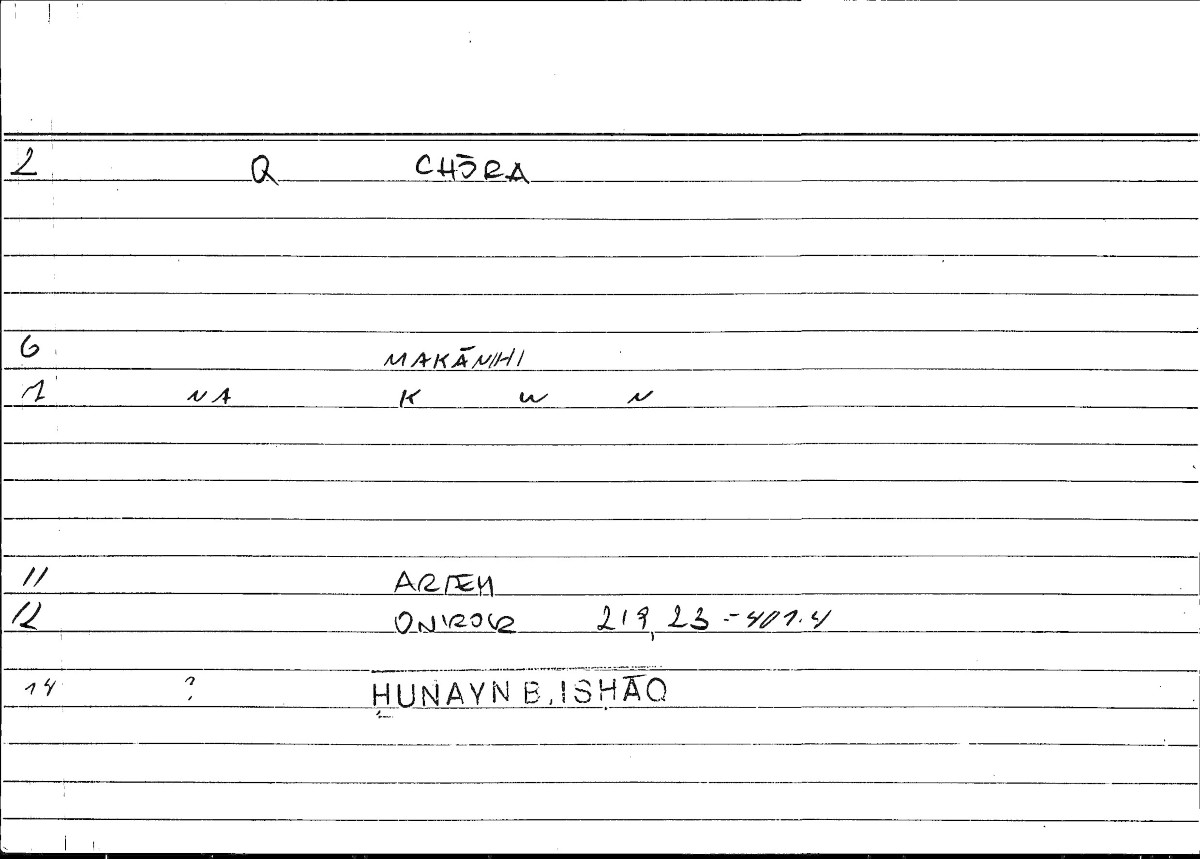 2 Q CHŌRA
6 MAKĀNIHI
7 NA K W N
11 ARTEM
12 ONIROCR 219,23 = 401.4
14 ? ḤUNAYN B. ISḤĀQ